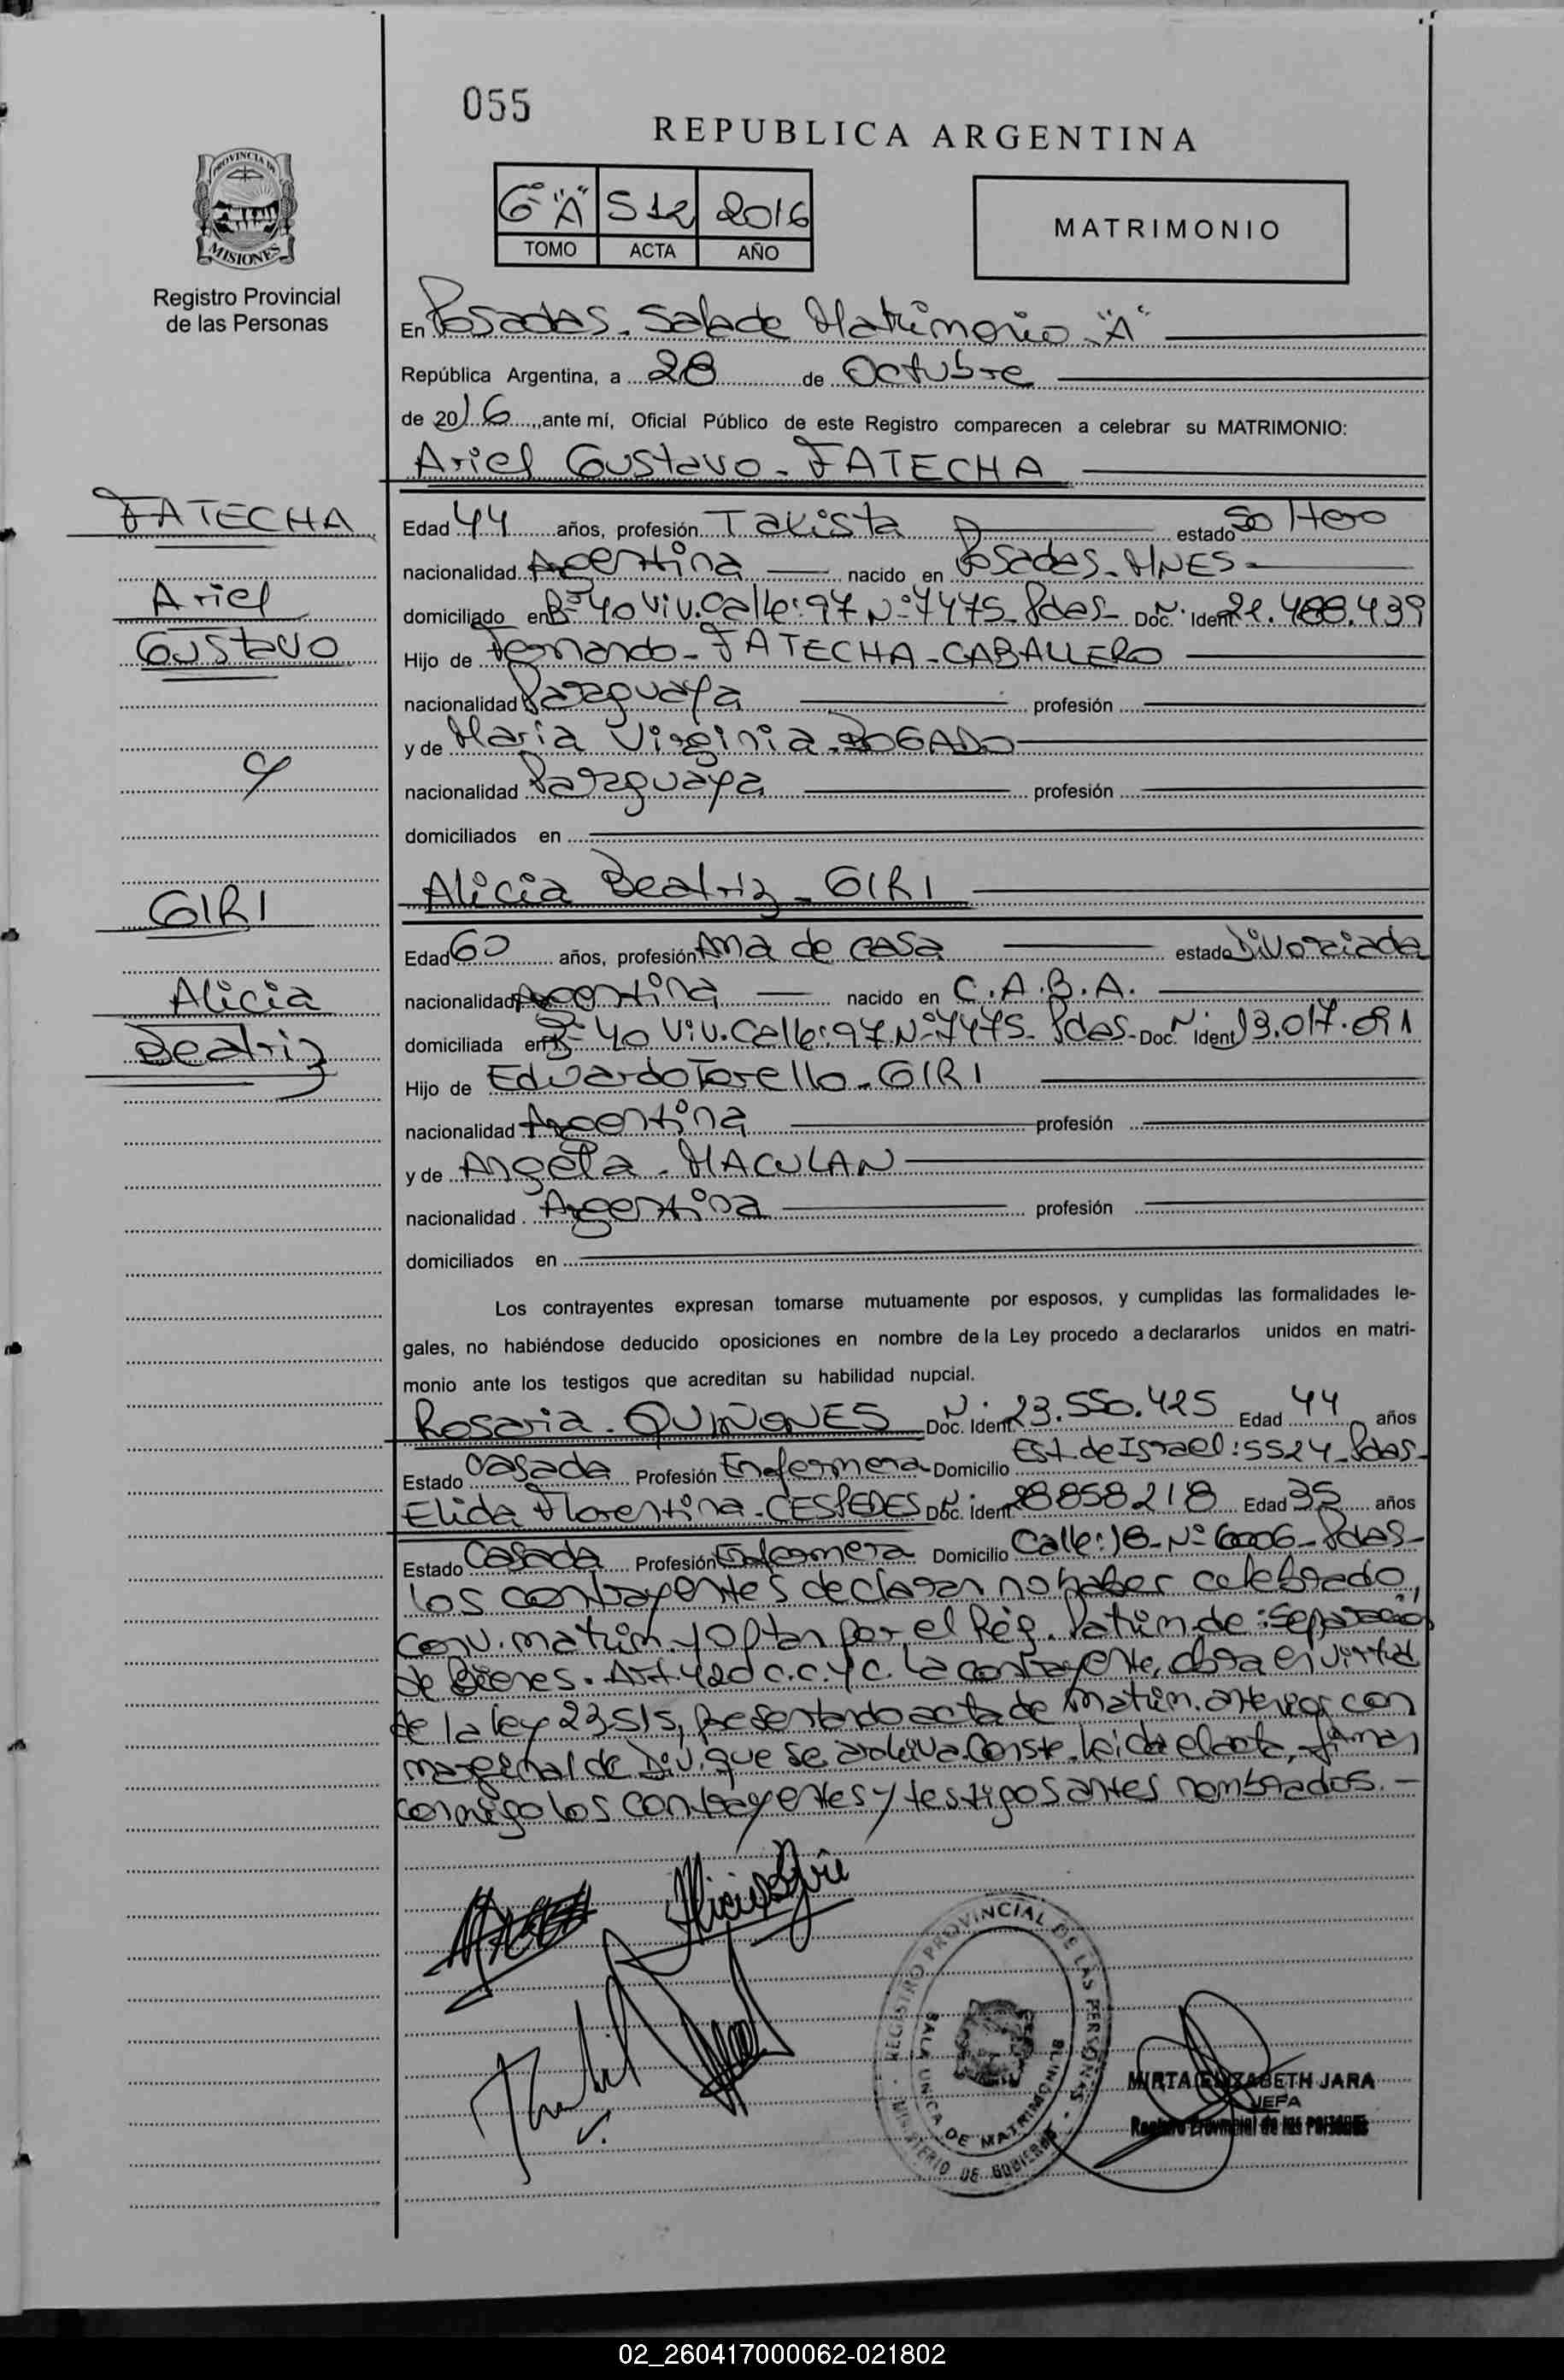 055
REPUBLICA ARGENTINA
6º "A" 512 2016
TOMO ACTA AÑO
MATRIMONIO
PROVINCIA DE
MISIONES
Registro Provincial
de las Personas
En Posadas - Sala de Matrimonio - "A"
República Argentina, a 28 de Octubre
de 2016, ante mí, Oficial Público de este Registro comparecen a celebrar su MATRIMONIO:
Ariel Gustavo - FATECHA
FATECHA
Ariel
Gustavo
Edad 44 años, profesión Taxista estado Soltero
nacionalidad Argentina nacido en Posadas - MNES -
domiciliado en Bº 40 Viv. Calle: 97 Nº 7475 - Pdas - Doc. Nº Ident. 22.488.439
Hijo de Fernando - FATECHA - CABALLERO
nacionalidad Paraguaya profesión
y de Maria Virginia - BOGADO
y
nacionalidad Paraguaya profesión
domiciliados en
Alicia Beatriz - GIRI
GIRI
Alicia
Beatriz
Edad 60 años, profesión Ama de casa estado Divorciada
nacionalidad Argentina nacido en C.A.B.A.
domiciliada en Bº 40 Viv. Calle: 97 Nº 7475 - Pdas - Doc. Nº Ident. 13.017.091
Hijo de Eduardo Torello - GIRI
nacionalidad Argentina profesión
y de Angela - MACULAN
nacionalidad Argentina profesión
domiciliados en
Los contrayentes expresan tomarse mutuamente por esposos, y cumplidas las formalidades le-
gales, no habiéndose deducido oposiciones en nombre de la Ley procedo a declararlos unidos en matri-
monio ante los testigos que acreditan su habilidad nupcial.
Rosaria - QUIÑONES Doc. Nº Ident. 23.550.425 Edad 44 años
Estado Casada Profesión Enfermera Domicilio Est. de Israel: 5524 - Pdas -
Elida Florentina - CESPEDES Doc. Nº Ident. 28858218 Edad 35 años
Estado Casada Profesión Enfermera Domicilio Calle: 18 - Nº 6006 - Pdas -
los contrayentes declaran no haber celebrado,
conv. matrim y optan por el Rég. Patrim de: Separación
de Bienes. Art. 420 C.C.y C. La contrayente, obra en virtud
de la ley 23515, presentando acta de matrim. anterior con
marginal de Div. que se archiva. Conste. Leida el acta, firman
conmigo los contrayentes y testigos antes nombrados. -
Alicia Giri
REGISTRO PROVINCIAL DE LAS PERSONAS
SALA UNICA DE MATRIMONIOS
MINISTERIO DE GOBIERNO
MIRTA ELIZABETH JARA
JEFA
Registro Provincial de las Personas
02_260417000062-021802